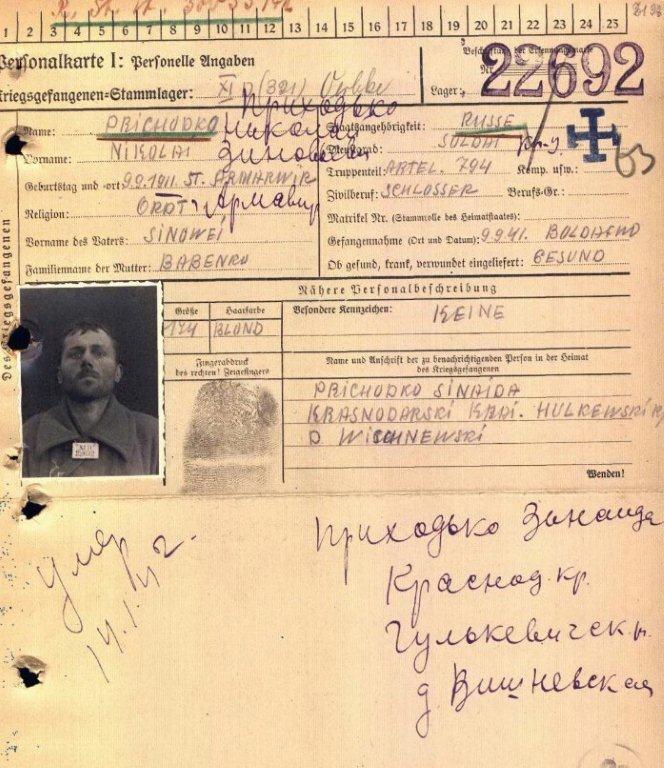 1 2 3 4 5 6 7 8 9 10 11 12 13 14 15 16 17 18 19 20 21 22 23 24 25
Personalkarte I: Personelle Angaben
Kriegsgefangenen-Stammlager: XI D (321)
Beschriftung der Erkennungsmarke
Nr. 22692
Lager:
Des Kriegsgefangenen
Name: PRICHODKO
Приходько
Vorname: NIKOLAI
Николай
Зиновеевич
Geburtstag und -ort: 9.9.1911. ST. ARMAWIR
Армавир
Religion: ORDT.
Vorname des Vaters: SINOWEI
Familienname der Mutter: BABENKO
Staatsangehörigkeit: RUSSE
Dienstgrad: SOLDAT
Truppenteil: ARTEL. 794 Komp. usw.:
Zivilberuf: SCHLOSSER Berufs-Gr.:
Matrikel Nr. (Stammrolle des Heimatstaates):
Gefangennahme (Ort und Datum): 9.9.41.
Ob gesund, krank, verwundet eingeliefert: GESUND
63
Nähere Personalbeschreibung
Größe Haarfarbe
174 BLOND
Besondere Kennzeichen: KEINE
Fingerabdruck
des rechten! Zeigefingers
Name und Anschrift der zu benachrichtigenden Person in der Heimat
des Kriegsgefangenen
PRICHODKO SINAIDA
KRASNODARSKI KRAI. HULKEWSKI
D WISCHNEWSKI
Wenden!
умер
14.1.42.
Приходько Зинаида
Краснод. кр.
Гулькевичск р.
д. Вишневская